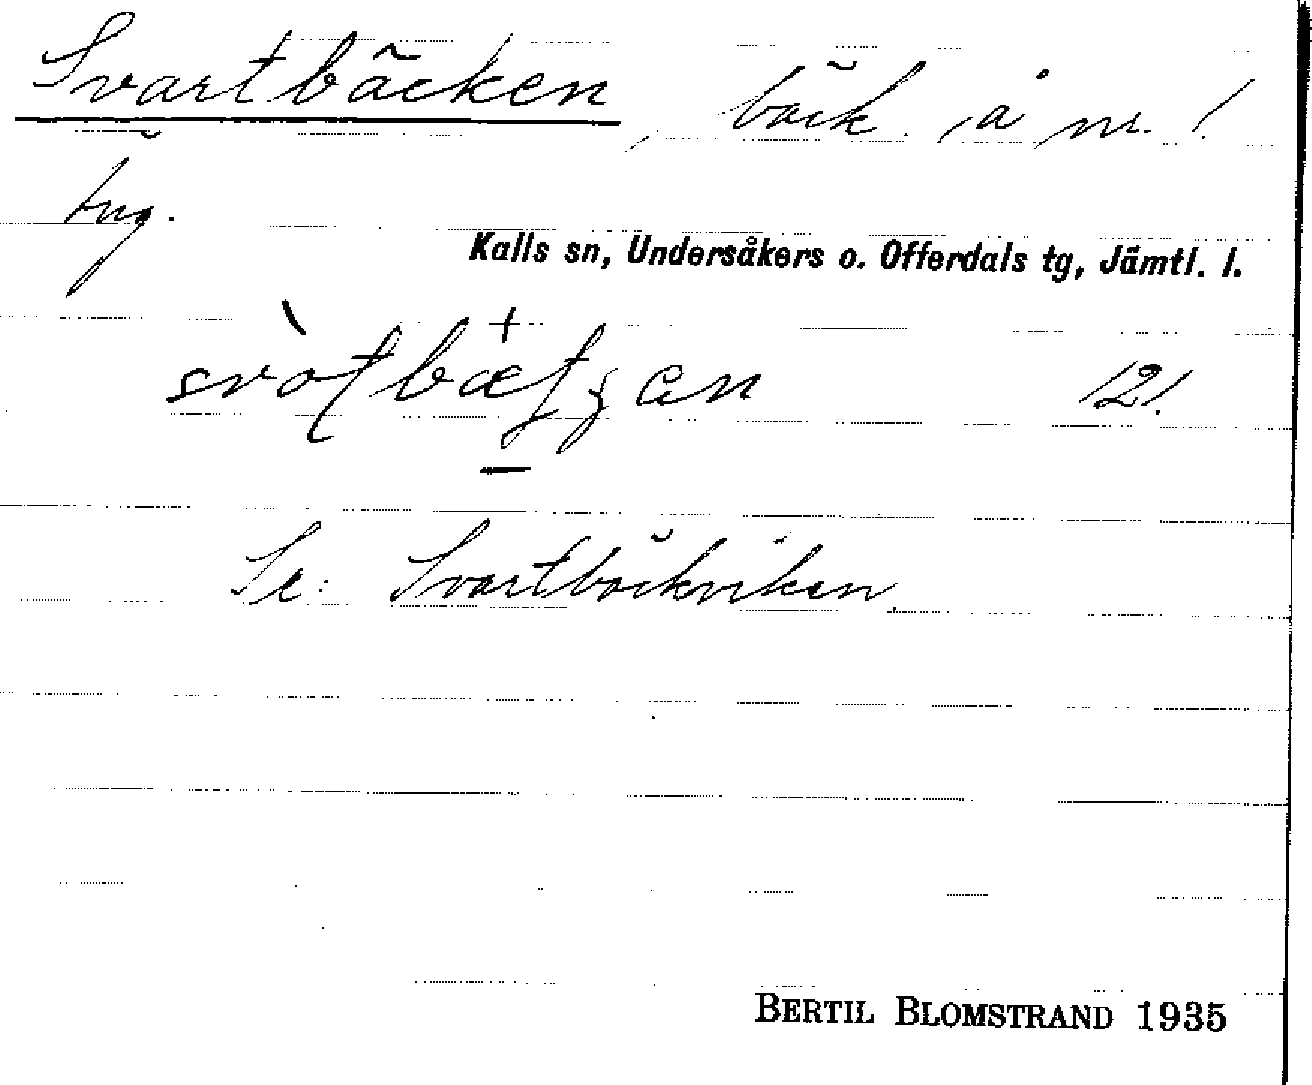 Svartbäcken, bäck, å nr. 1
Kalls sn, Undersåkers o. Offerdals tg, Jämtl. l.
121.
Se: Svartbäckviken
BERTIL BLOMSTRAND 1935